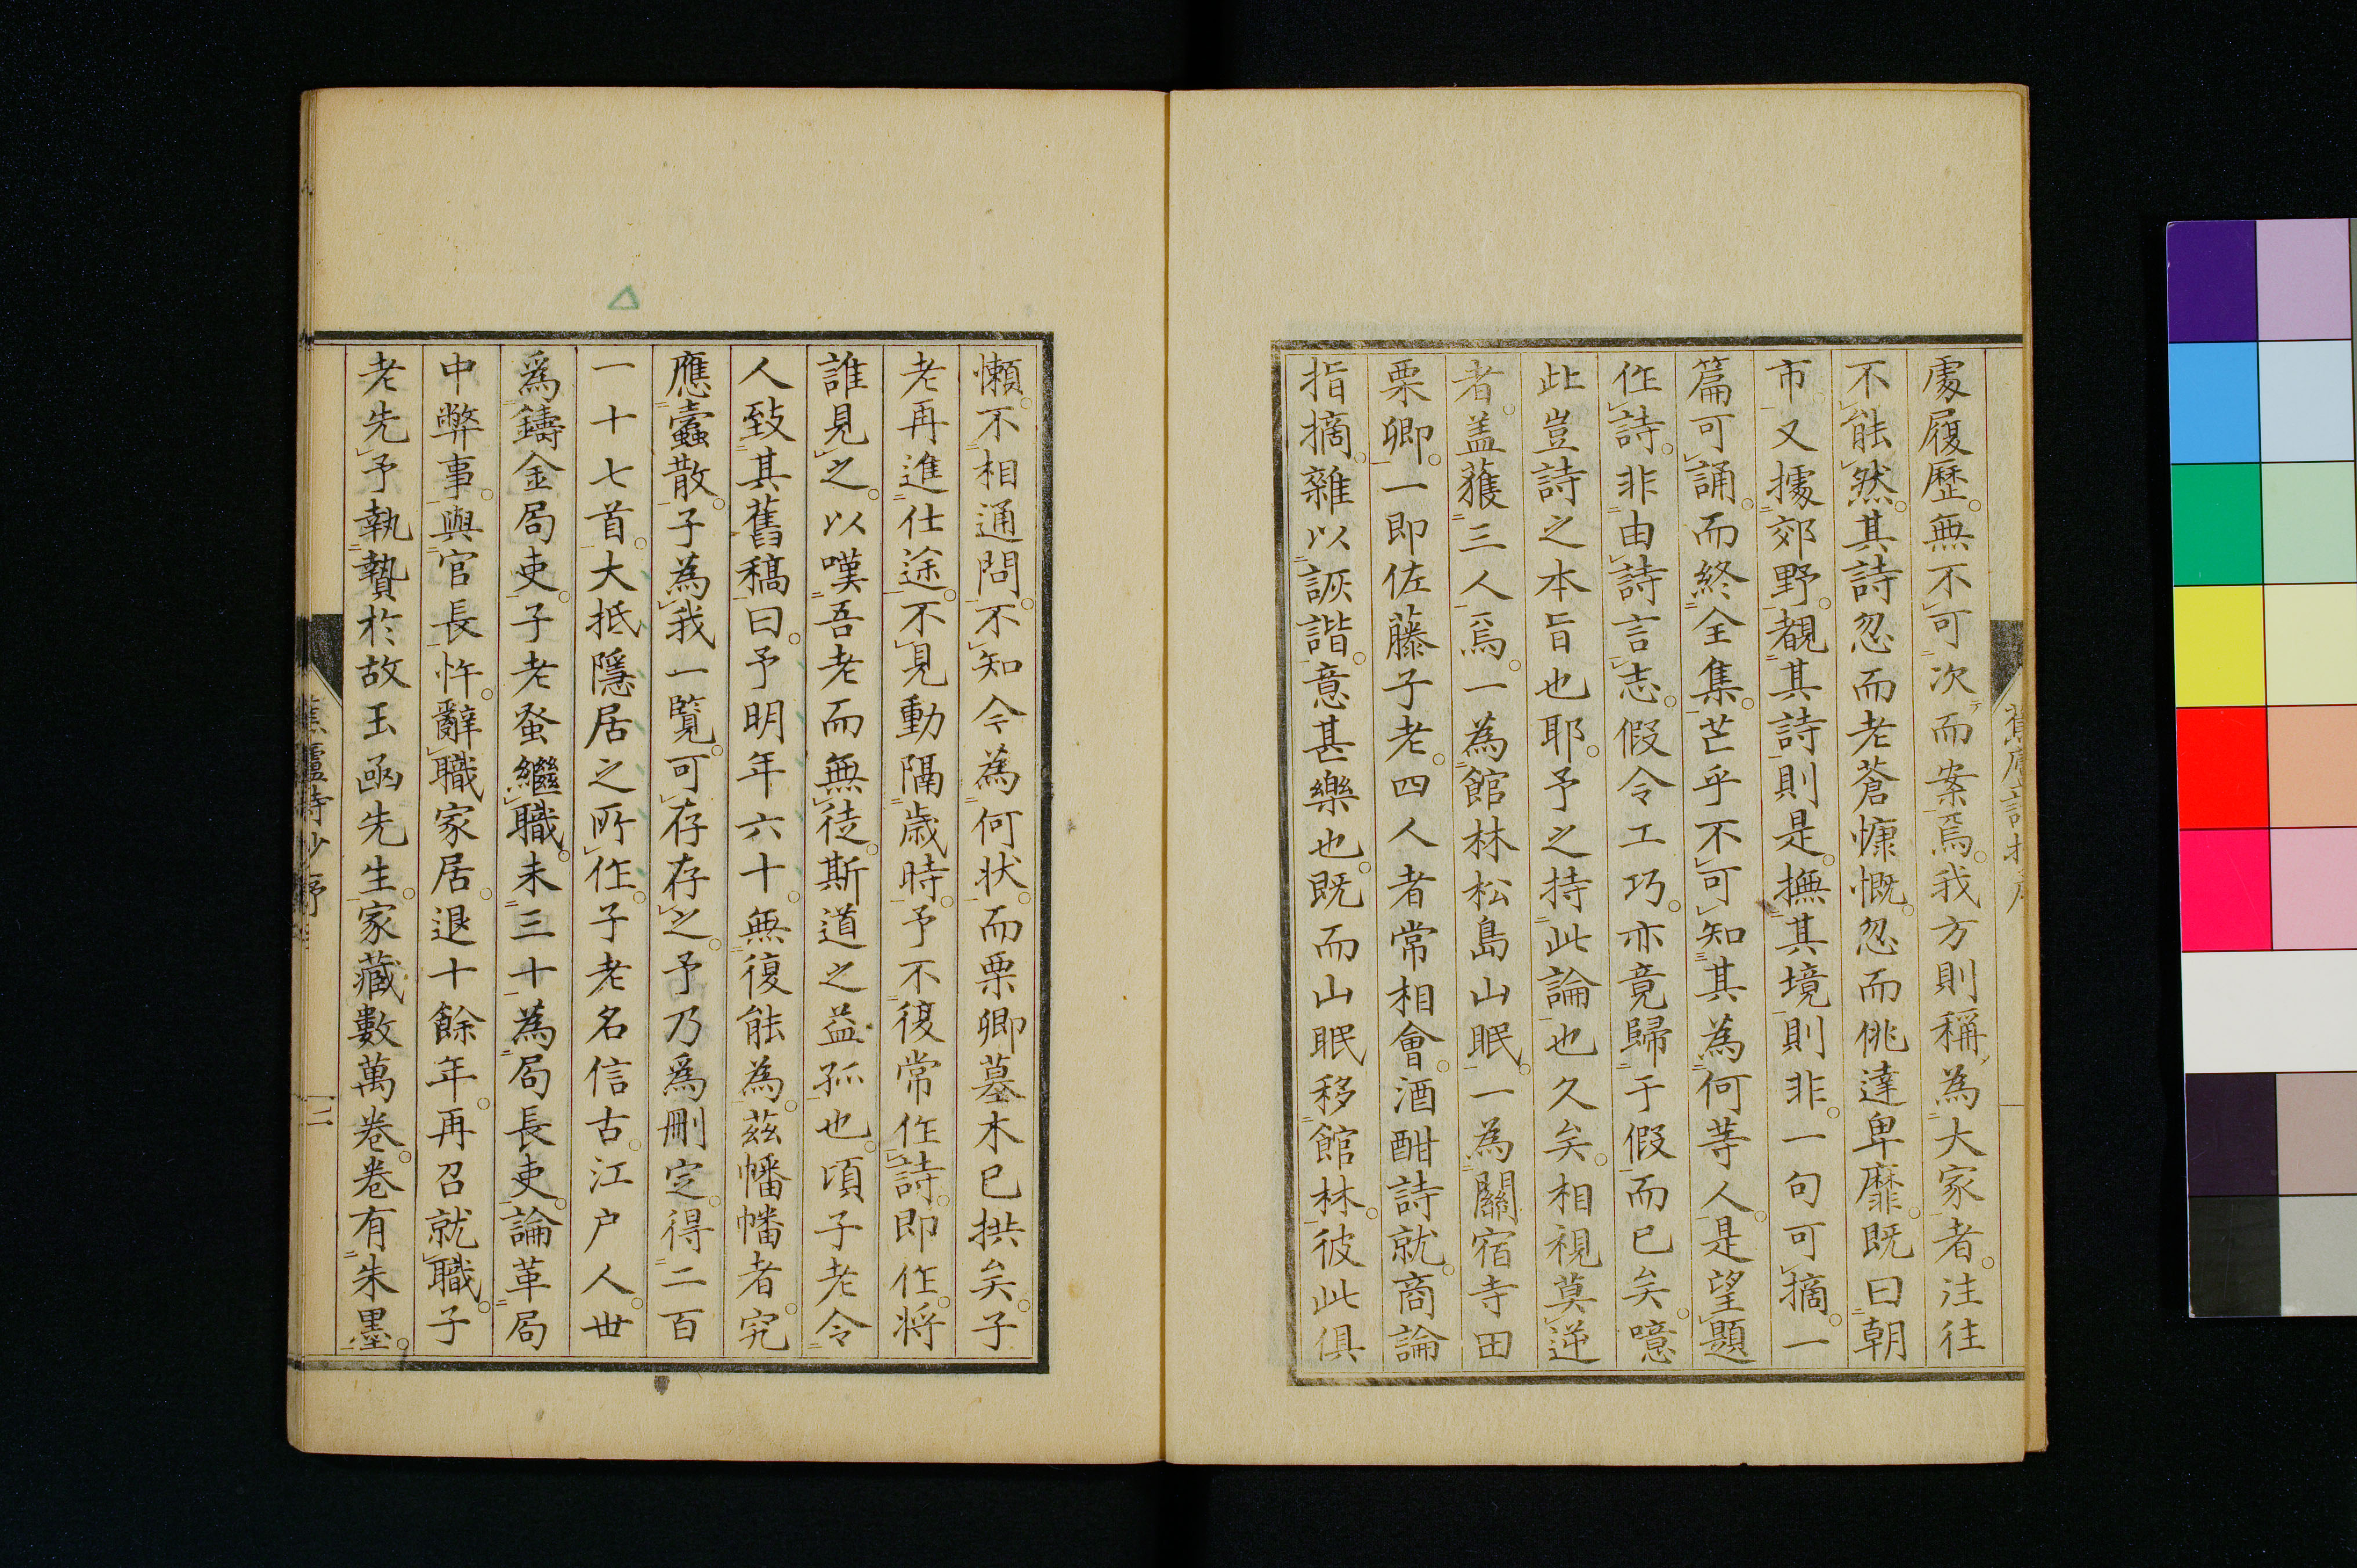 處履歴。無不可次而案焉。我方則稱為大家者。注往
不能然。其詩忽而老蒼慷慨。忽而佻達卑靡。既曰朝
市又據郊野。覩其詩則是。撫其境則非。一句可摘。一
篇可誦。而終全集。芒乎不可知其為何等人。是望題
作詩。非由詩言志。假令工巧。亦竟歸于假而已矣。噫
此豈詩之本旨也耶。予之持此論也久矣。相視莫逆
者。盖獲三人焉。一為館林松島山眠。一為關宿寺田
栗卿。一即佐藤子老。四人者常相會。酒酣詩就。商論
指摘。雜以詼諧。意甚樂也。既而山眠移館林。彼此俱
懶。不相通問。不知今為何状。而栗卿墓木已拱矣。子
老再進仕途。不見動隔歳時。予不復常作詩。即作。将
誰見之。以嘆吾老而無徒。斯道之益孤也。頃子老令
人致其舊稿曰。予明年六十。無復能為。茲幡幡者。究
應蠧散。子為我一覧。可存存之。予乃爲刪定。得二百
一十七首。大抵隱居之所作。子老名信古。江户人。世
爲鑄金局吏。子老蚤繼職。未三十為局長吏。論革局
中弊事。與官長忤。辭職家居。退十餘年。再召就職。子
老先予執贄於故玉函先生。家藏數萬卷。卷有朱墨。
蕉廬詩鈔序
二